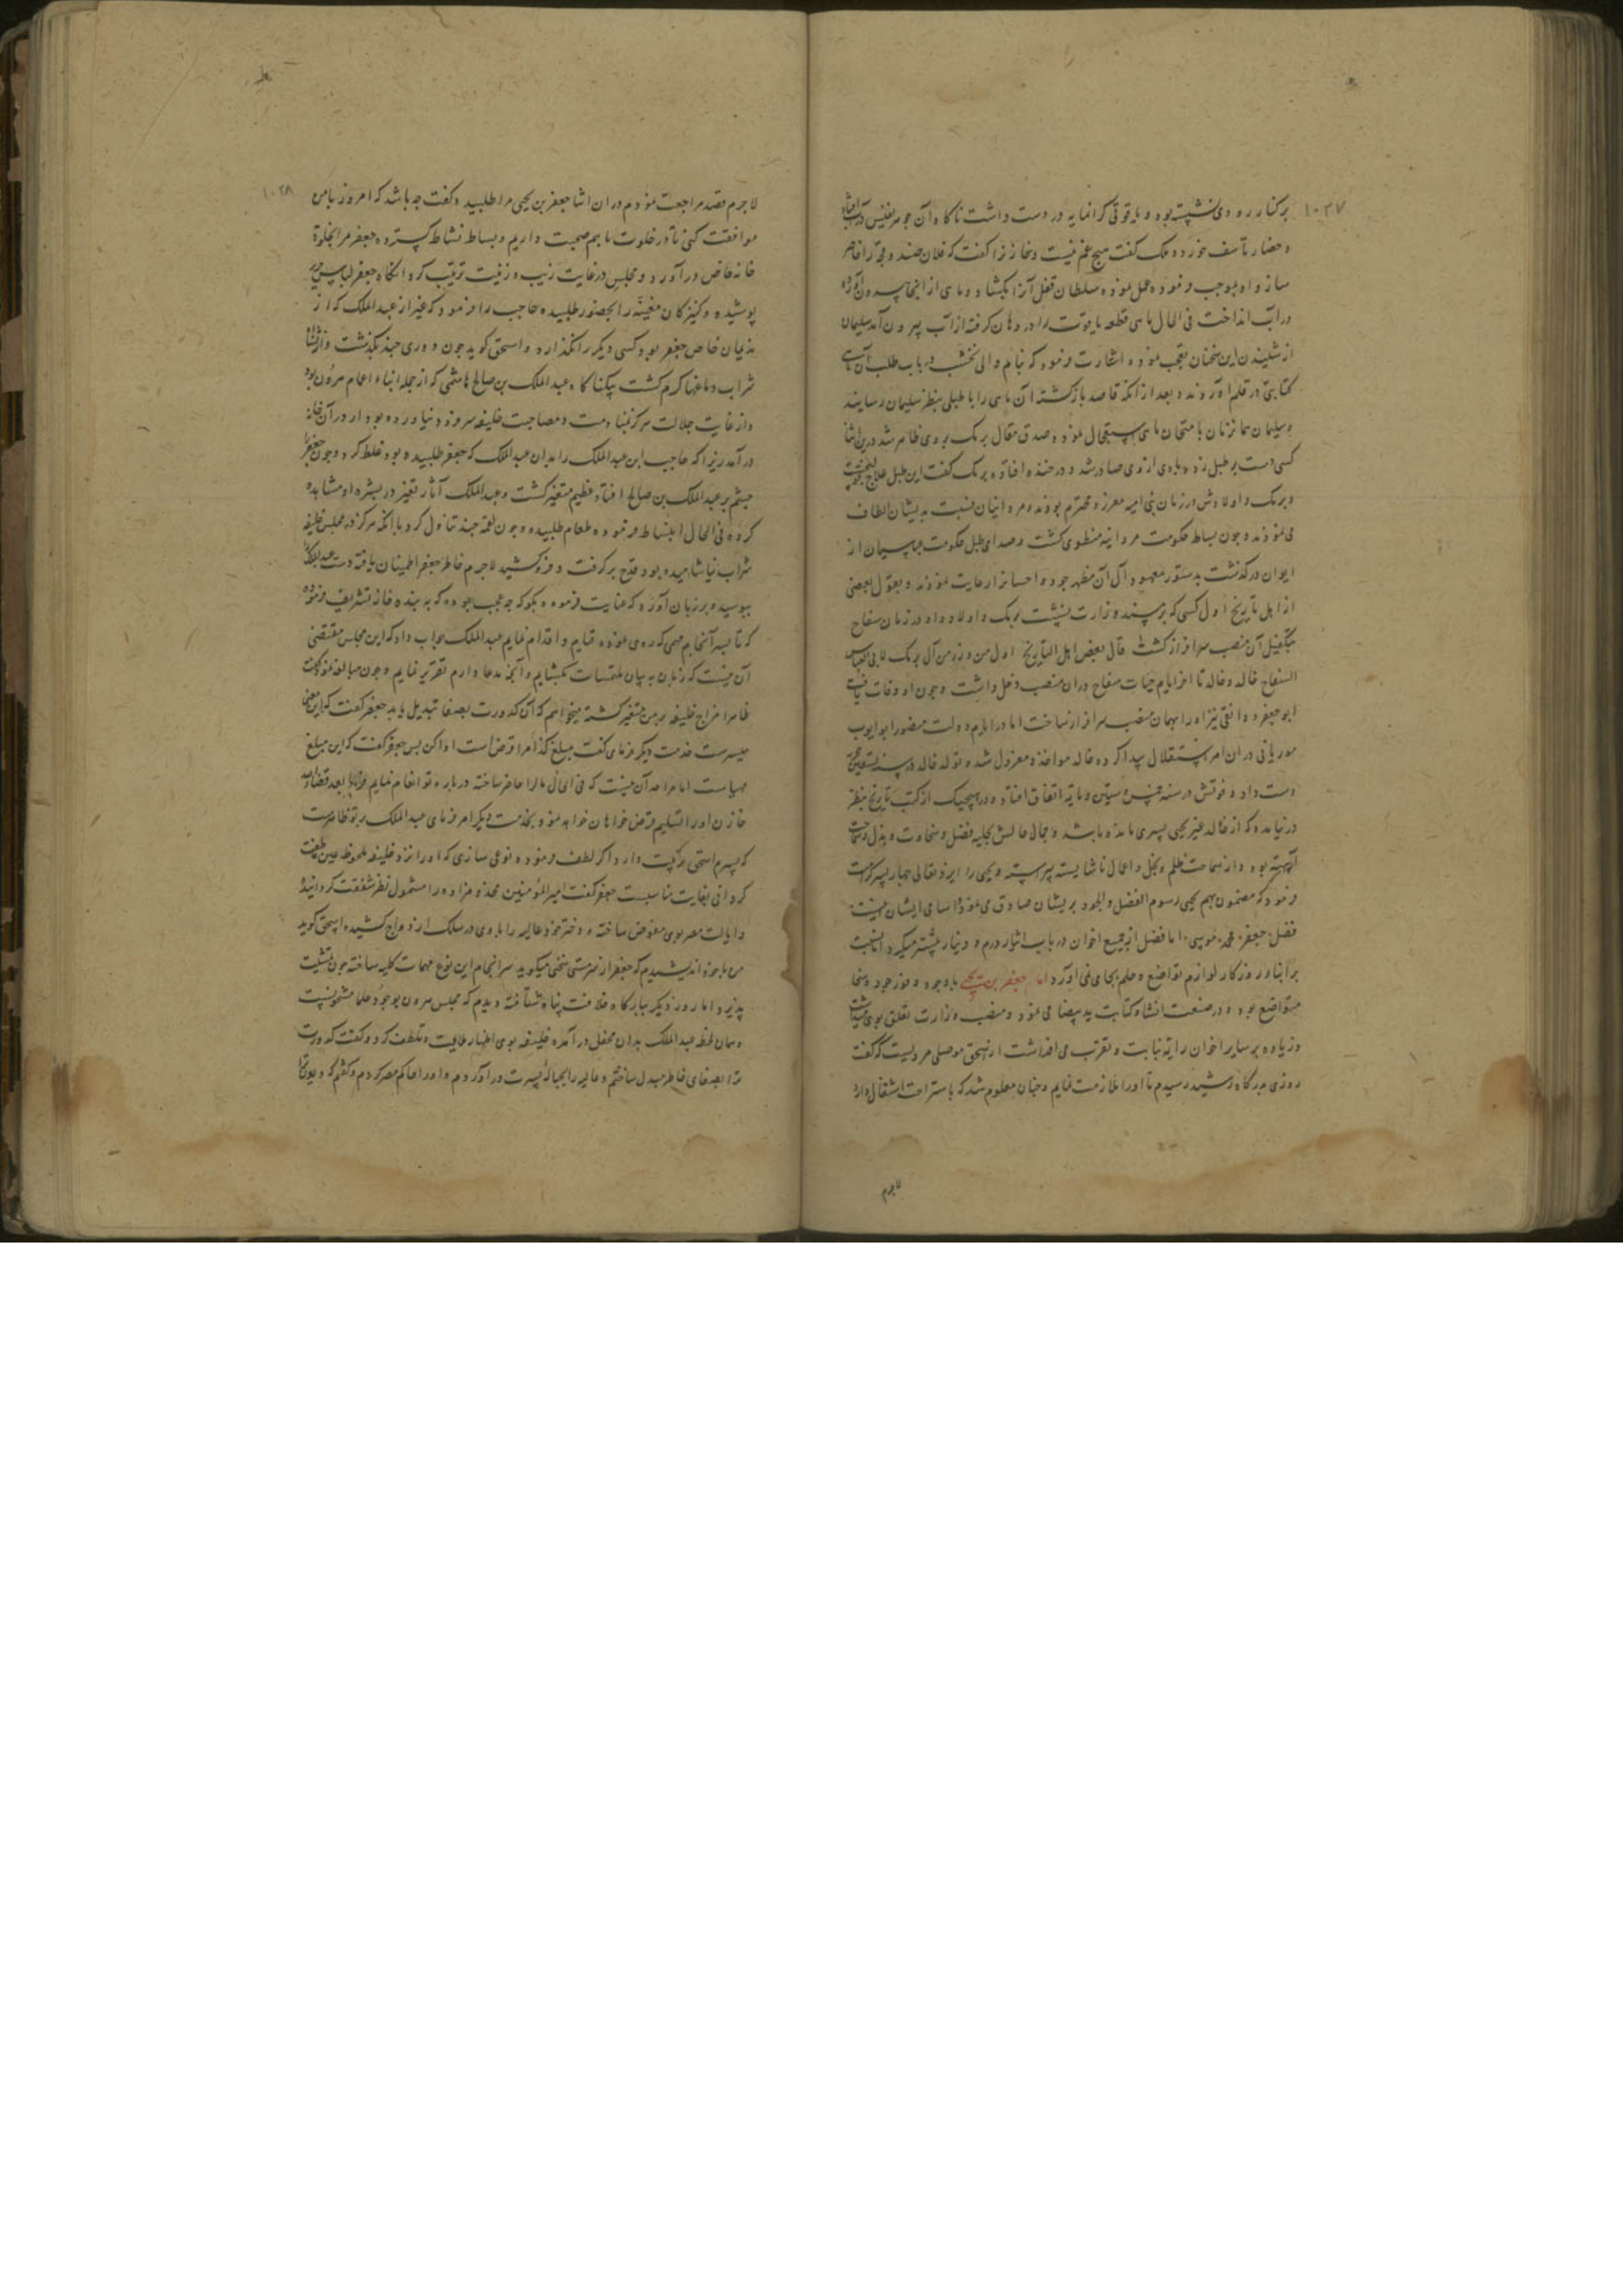 ۱۰۲۷
برکنار رودی نشسته بود و یاقوتی کرانمایه در دست داشت ناکاه آن جوهر نفیس در آب افتاد
و حضار تأسف خوردند ملک کفت هیچ غم نیست و خازن را کفت که فلان صندوقچه را حاضر
سازد او بموجب فرموده عمل نموده سلطان قفل آنرا بکشاد و ماهی از انجا بیرون آورده
در آب انداخت فی الحال ماهی قطعه یاقوت را در دهان کرفته از آب بیرون آمد سلیمان
از شنیدن این سخنان تعجب نموده اشارت فرمود که بنام والی نخشب در باب طلب آن ماهی
کتابتی در قلم آوردند و بعد از آنکه قاصد بازکشته آن ماهی را با طبلی بنظر سلیمان رسانیدند
و سلیمان همان زمان بامتحان ماهی استعجال نمود و صدق مقال برمک بروی ظاهر شد درین اثنا
کسی دست بر طبل زد و بادی از وی صادر شد و در خنده افتاد و برمک کفت این طبل علاج قولنج
و برمک و اولادش در زمان بنی امیه معزز و محترم بودند و مروانیان نسبت بدیشان الطاف
می نمودند و چون بساط حکومت مروانیه منطوی کشت و صدای طبل حکومت عباسیان از
ایوان درکذشت بدستور معهود آل آن مظهر جود و احسانرا رعایت نمودند و بقول بعضی
از اهل تاریخ اول کسی که بر مسند وزارت نشست برمک و اولاد او در زمان سفاح
بتکفیل آن منصب سرافراز کشت قال بعض اهل التاریخ اول من وزر من آل برمک لابی العباس
السفاح خالد و خالد تا آخر ایام حیات سفاح در ان منصب دخل داشت و چون او وفات یافت
ابو جعفر دوانقی نیز او را بهمان منصب سرافراز ساخت اما در ایام دولت منصور ابو ایوب
موریانی در ان امر استقلال پیدا کرده خالد مواخذ و معزول شد و تولد خالد در سنه تسعین
دست داد و فوتش در سنه خمس و ستین و مایه اتفاق افتاد و در هیچیک از کتب تاریخ بنظر
در نیامده که از خالد غیر یحیی پسری مانده باشد و جمال حالش بحلیه فضل و سخاوت و بذل و سماحت
آراسته بود و از سماجت ظلم و بخل و اعمال ناشایسته پیراسته و یحیی را ایزد تعالی چهار پسر کرامت
فرمود که مضمون بهم یحیی رسوم الفضل و الجود بریشان صادق می نمود و اسامی ایشان اینست
فضل جعفر محمد موسی اما فضل از جمیع اخوان در باب ایثار درم و دینار بیشتر میکرد اما نسبت
بر ابناء روزکار لوازم تواضع و حلم بجای نمی آورد اما جعفر بن یحیی با وجود وفور جود و سخا
متواضع بود و در صنعت انشا و کتابت ید بیضا می نمود و منصب وزارت تعلق بوی میداشت
و زیاده بر سایر اخوان رایه نیابت و تقرب می افراشت از اسحق موصلی مرویست که کفت
روزی بدرکاه رشید رسیدم تا او را ملازمت نمایم و چنان معلوم شد که باستراحت اشتغال دارد
لاجرم
۱۰۲۸
لاجرم قصد مراجعت نمودم در ان اثنا جعفر بن یحیی مرا طلبید و کفت چه باشد که امروز با من
موافقت کنی تا در خلوت با هم صحبت داریم و بساط نشاط کسترده جعفر مرا بخلوة
خانه خاص درآورد و مجلس در غایت زیب و زینت ترتیب کرد انکاه جعفر لباس
پوشیده و کنیزکان مغنیه را بحضور طلبیده حاجب را فرمود که غیر از عبد الملک که از
ندیمان خاص جعفر بود کسی دیکر را نکذارد و اسحق کوید چون دوری چند بکذشت و از نشاء
شراب دماغها کرم کشت بیکناکاه عبد الملک بن صالح هاشمی که از جمله ابناء اعمام هرون بود
و از غایت جلالت هرکز بمنادمت و مصاحبت خلیفه سر فرو نیاورده بود از در آن خانه
درآمد زیرا که حاجب ابن عبد الملک را بدان عبد الملک که جعفر طلبیده بود غلط کرد و چون جعفر را
چشم بر عبد الملک بن صالح افتاد عظیم متغیر کشت و عبد الملک آثار تغیر در بشره او مشاهده
کرده فی الحال انبساط فرموده طعام طلبید و چون لقمه چند تناول کرد با انکه هرکز در مجلس خلیفه
شراب نیاشامیده بود قدح برکرفت و فروکشید لاجرم خاطر جعفر اطمینان یافته دست عبد الملک
ببوسید و بر زبان آورد که عنایت فرموده بکو که چه موجب بوده که به بنده خانه تشریف فرموده
که تا بسرانجام مهمی که روی نموده قیام و اقدام نمایم عبد الملک جواب داد که این مجلس مقتضی
آن نیست که زبان به بیان ملتمسات بکشایم و آنچه مدعا دارم تقریر نمایم و چون مبالغه نمود کفت
ظاهرا مزاج خلیفه بر من متغیر کشته میخواهم که آن کدورت بصفا تبدیل یابد جعفر کفت که این معنی
میسرست خدمت دیکر فرمای کفت مبلغ کذا مرا قرض است ادا کن پس جعفر کفت که این مبلغ
مهیاست اما مرا حد آن نیست که فی الحال مال را حاضر ساخته در باره تو انعام نمایم
خازن او را تسلیم قرض خواهان خواهد نمود بخدمت دیکر امر فرمای عبد الملک بر تو ظاهرست
که پسرم اسحق رکیب دارد اکر لطف فرموده نوعی سازی که او را نزد خلیفه ملحوظ عین عاطفت
کردانی بغایت مناسبست جعفر کفت امیر المؤمنین مخدومزاده را مشمول نظر شفقت کردانیده
و ایالت مصر بوی مفوض ساخته و دختر خود عالیه را با وی در سلک ازدواج کشیده اسحق کوید
من با خود اندیشیدم که جعفر از سر مستی سخنی میکوید سرانجام این نوع مهمات کلیه ساخته چون تمشیت
پذیرد اما روز دیکر ببارکاه خلافت پناه شتافته دیدم که مجلس هرون بوجود علما مشحونست
و همان لحظه عبد الملک بدان محفل درآمده خلیفه بوی اظهار ملایمت و تلطف کرد و کفت کدورت
ترا بصفای خاطر مبدل ساختم و عالیه را بحباله پسرت درآوردم و او را حاکم مصر کردم و کفتم که دیون ترا